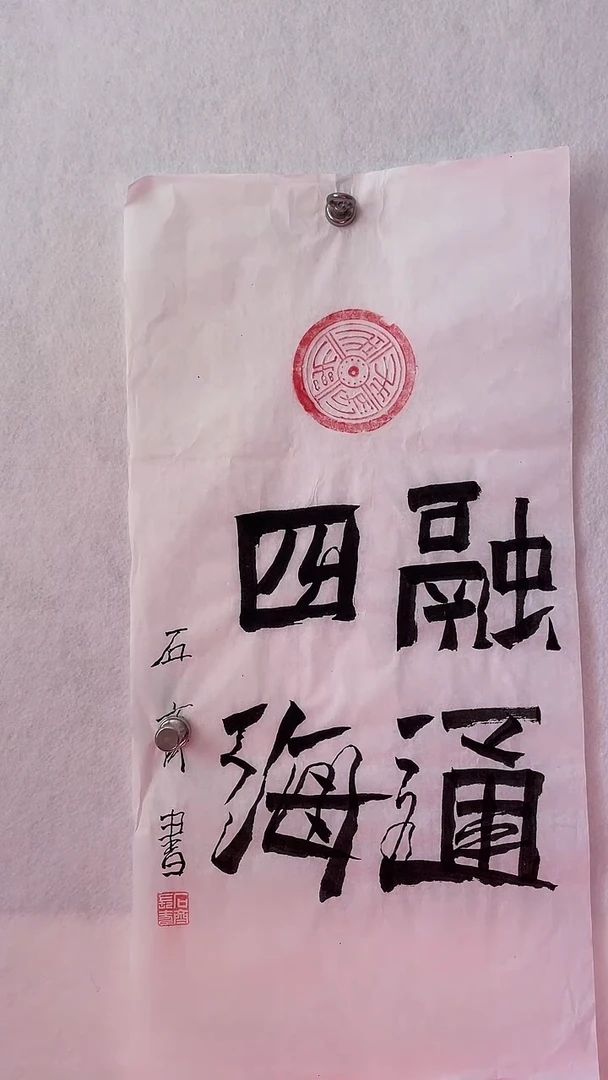 融通
四海
石 書